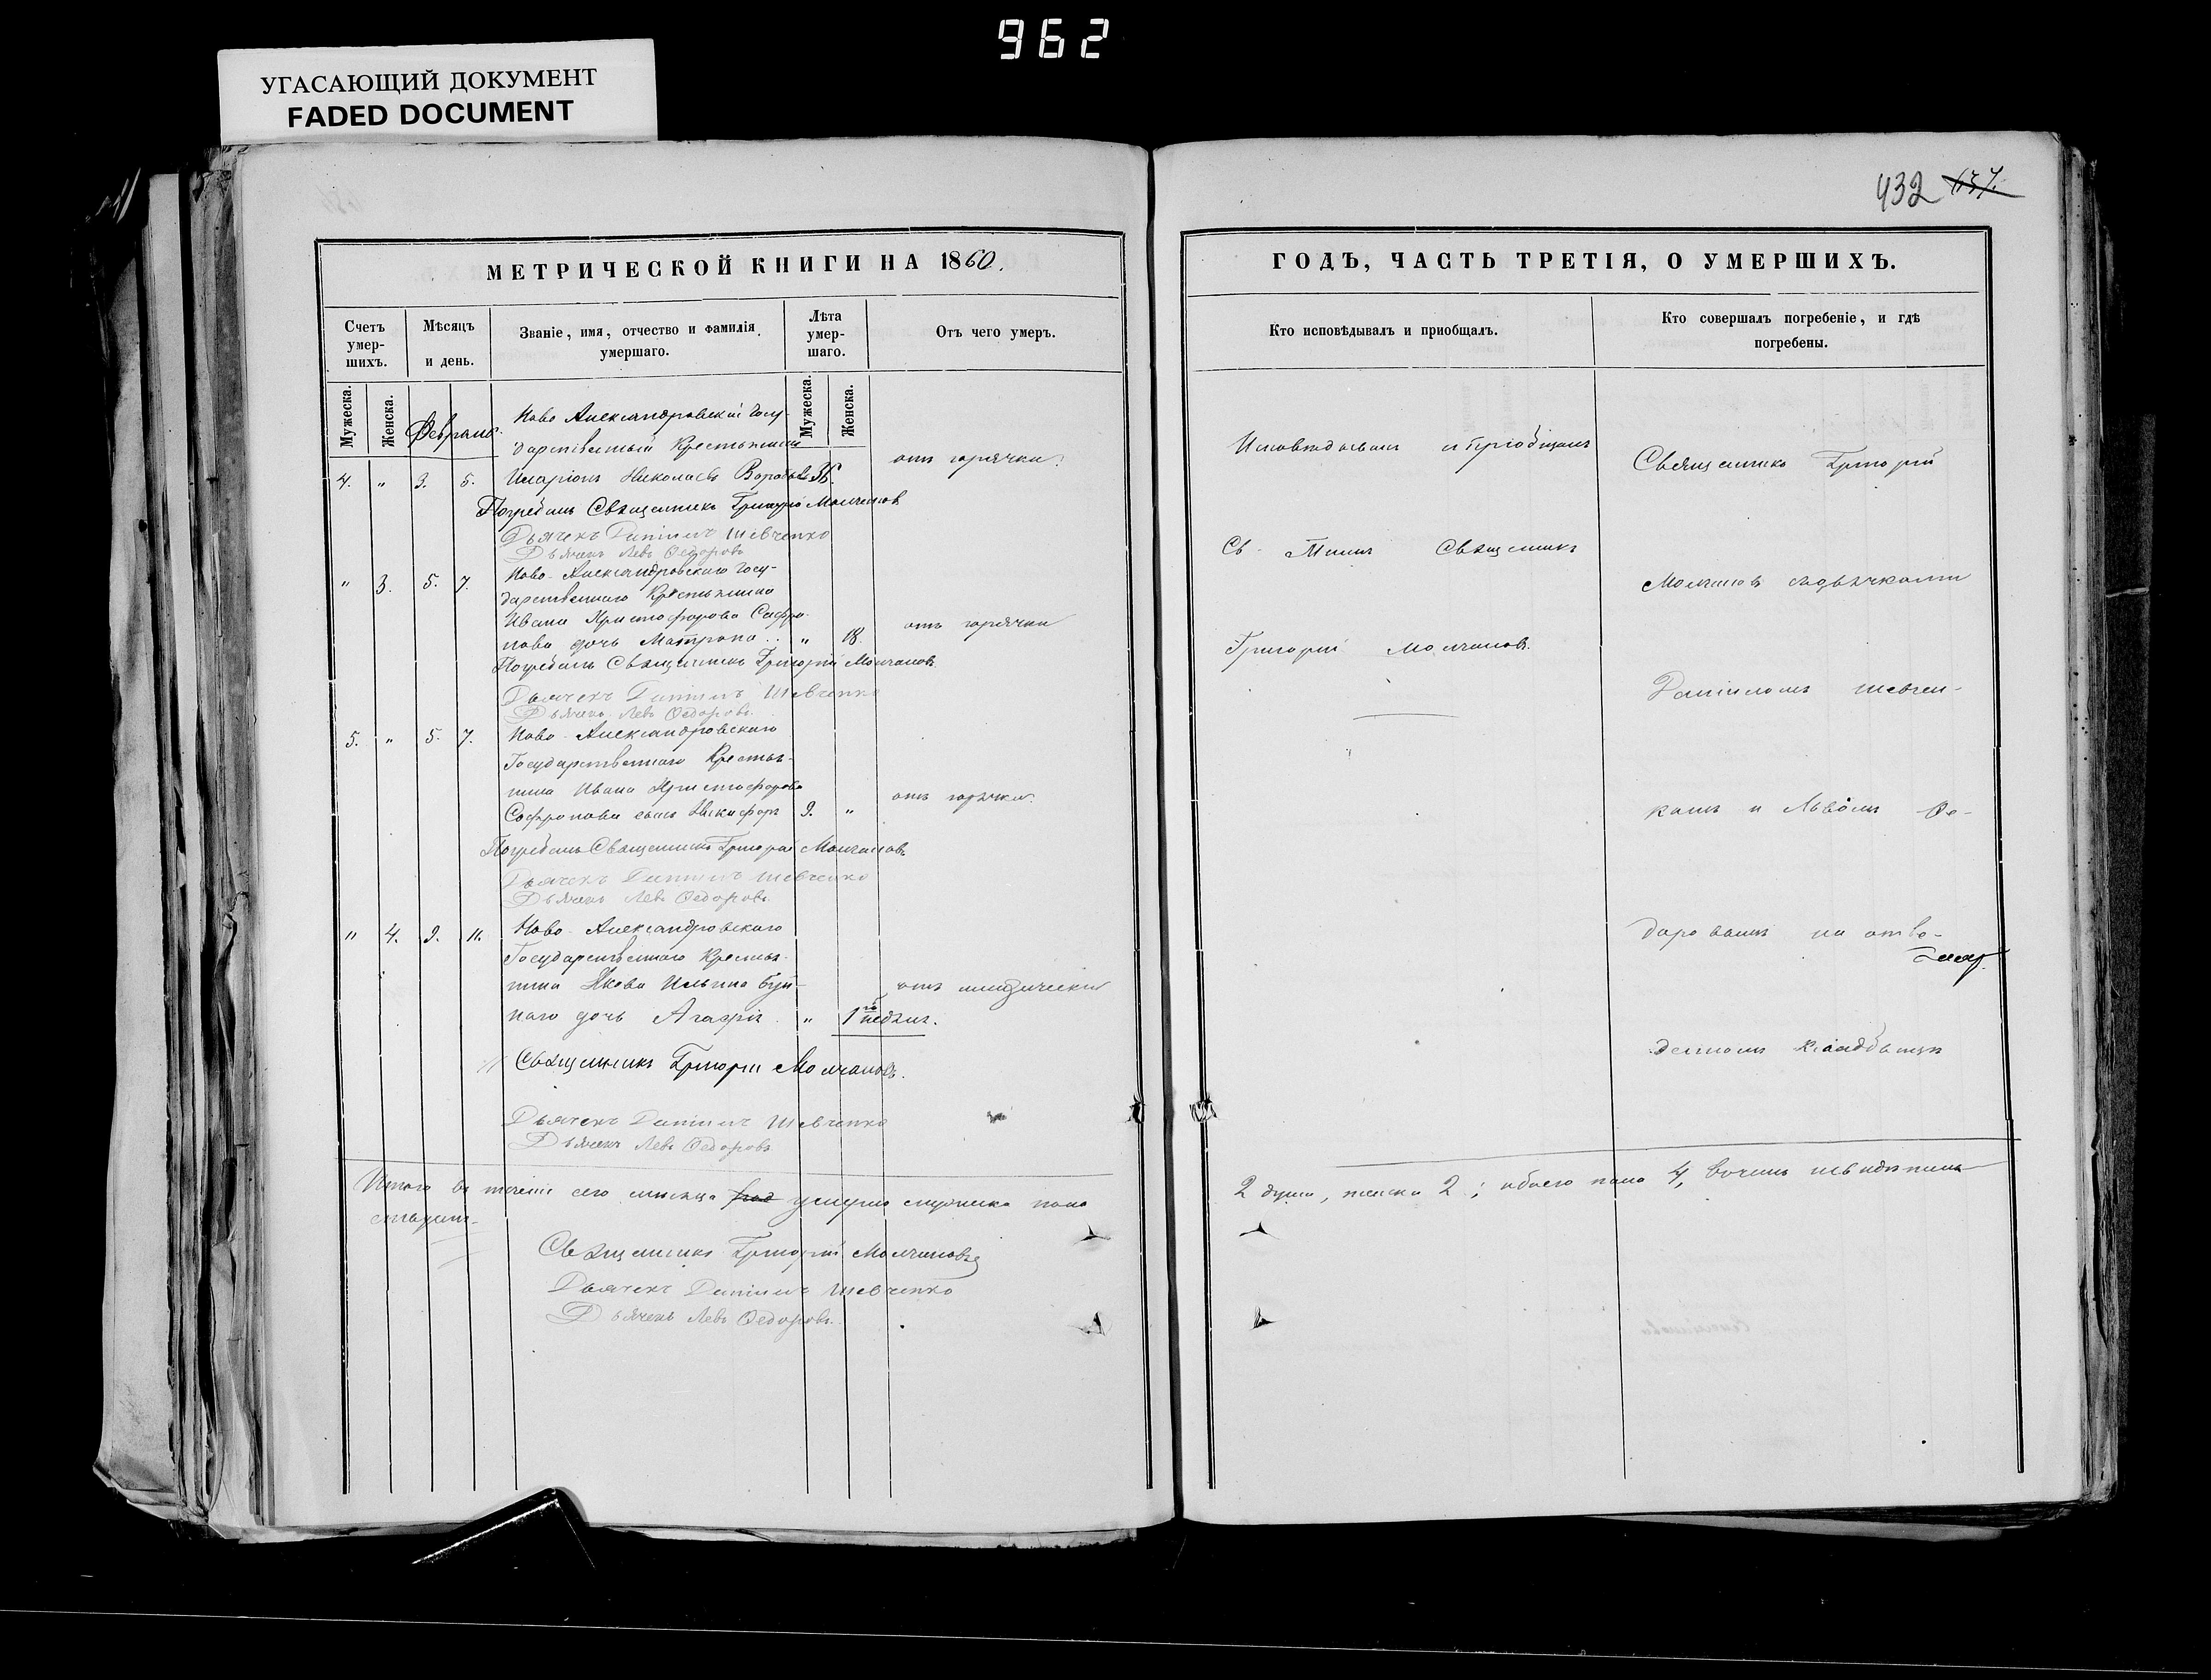 962
УГАСАЮЩИЙ ДОКУМЕНТ
FADED DOCUMENT
МЕТРИЧЕСКОЙ КНИГИ НА 1860.
Счетъ умер-шихъ.
Мѣсяцъ и день.
Званіе, имя, отчество и фамилія умершаго.
Лѣта умер-шаго.
Отъ чего умеръ.
Мужеска.
Женска.
Мужеска.
Женска.
Февраль
Ново Александровскій Госу-
дарственный Крестьянинъ
4. " 3. 5. Иларіонъ Николаевъ 36. отъ горячки.
Погребалъ Священникъ Григорій Молчановъ
Дьячекъ Даніилъ Шевченко
Дьячекъ Левъ Ѳедоровъ
" 3. 5. 7. Ново-Александровскаго Госу-
дарственнаго Крестьянина
Ивана Христофорова Софро-
нова дочь Матрона .. " 18. отъ горячки
Погребалъ Священникъ Григорій Молчановъ
Дьячекъ Даніилъ Шевченко
Дьячекъ Левъ Ѳедоровъ.
5. " 5. 7. Ново-Александровскаго
Государственнаго Крестья-
нина Ивана Христофорова
Софронова сынъ Никифоръ 9. " отъ горячки.
Погребалъ Священникъ Григорій Молчановъ
Дьячекъ Даніилъ Шевченко
Дьячекъ Левъ Ѳедоровъ.
" 4. 9. 11. Ново-Александровскаго
Государственнаго Крестья-
нина Якова Ильина
наго дочь Агафія. " 1 недѣли. отъ младенческой
Священникъ Григорій Молчановъ.
Дьячекъ Даніилъ Шевченко
Дьячекъ Левъ Ѳедоровъ
Итого въ теченіи сего мѣсяца умерло мужеска пола
Священникъ Григорій Молчановъ
Дьячекъ Даніилъ Шевченко
Дьячекъ Левъ Ѳедоровъ.
432 637.
ГОДЪ, ЧАСТЬ ТРЕТІЯ, О УМЕРШИХЪ.
Кто исповѣдывалъ и приобщалъ.
Кто совершалъ погребеніе, и гдѣ погребены.
Исповѣдывалъ и пріобщалъ
Св. Таинъ Священникъ
Григорій Молчановъ.
Священникъ Григорій
Молчановъ съ дьячками
Даніиломъ Шевчен-
комъ и Львомъ Ѳе-
доровымъ на отве-
денномъ кладбищѣ
2 души, женска 2; обоего пола 4,